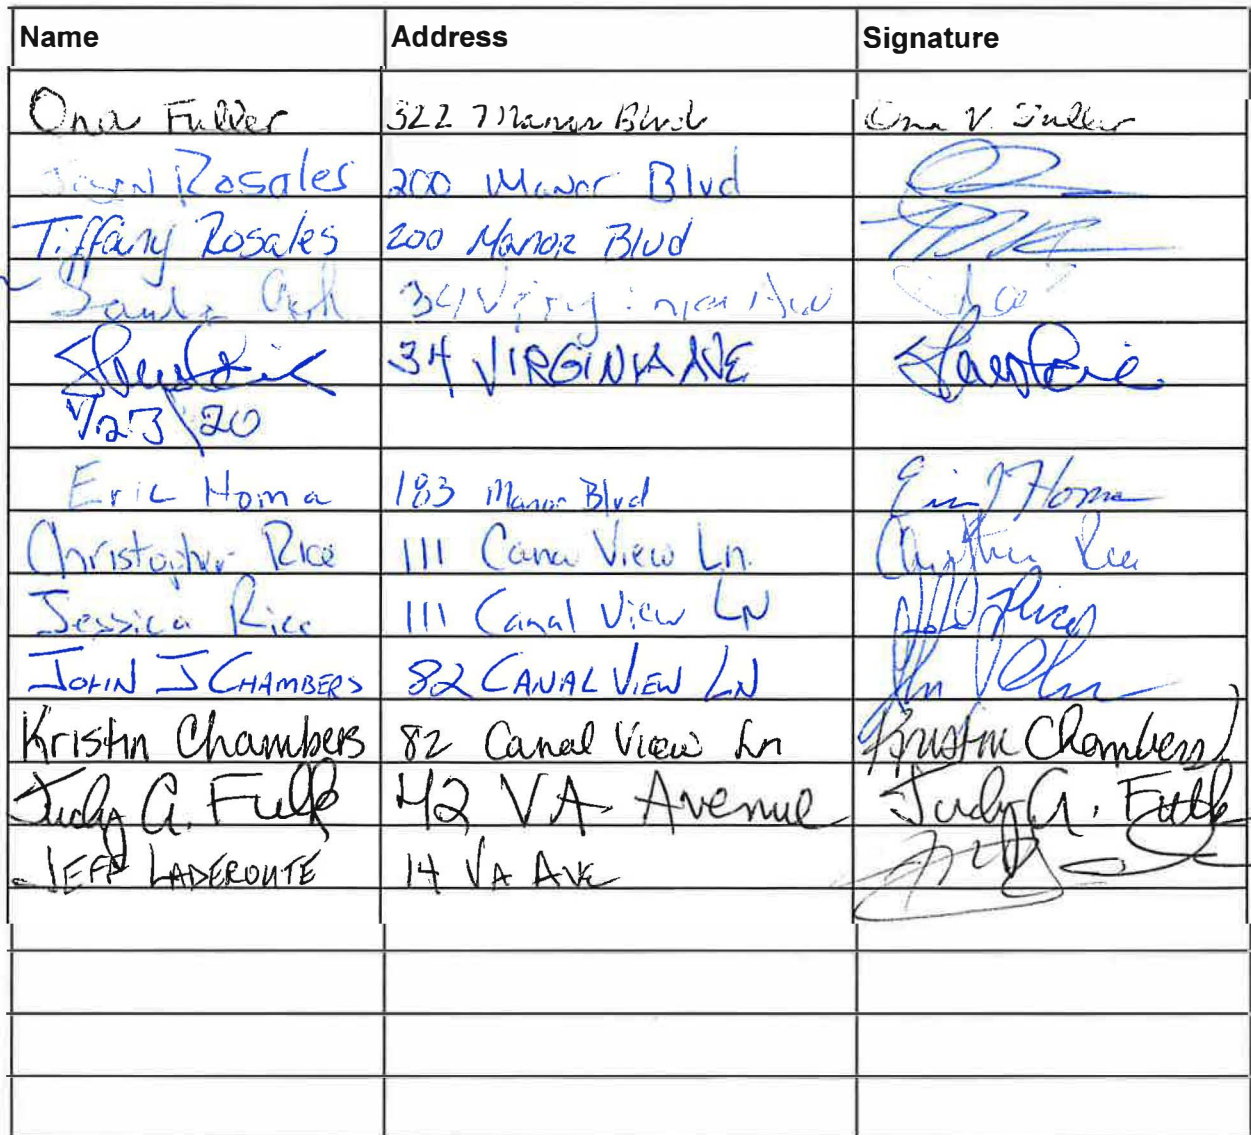 Name Address Signature
Ona Fuller 322 Manor Blvd Ona V. Fuller
Rosales 200 Manor Blvd
Tiffany Rosales 200 Manor Blvd
34 Virginia Ave
34 VIRGINIA AVE
1/23/20
Eric Homa 183 Manor Blvd Eric J Homa
Christopher Rice 111 Canal View Ln. Christopher Rice
Jessica Rice 111 Canal View LN
JOHN J CHAMBERS 82 CANAL VIEW LN
Kristin Chambers 82 Canal View Ln Kristin Chambers
Judy A. Fulk 42 VA Avenue Judy A. Fulk
JEFF LADEROUTE 14 VA AVE